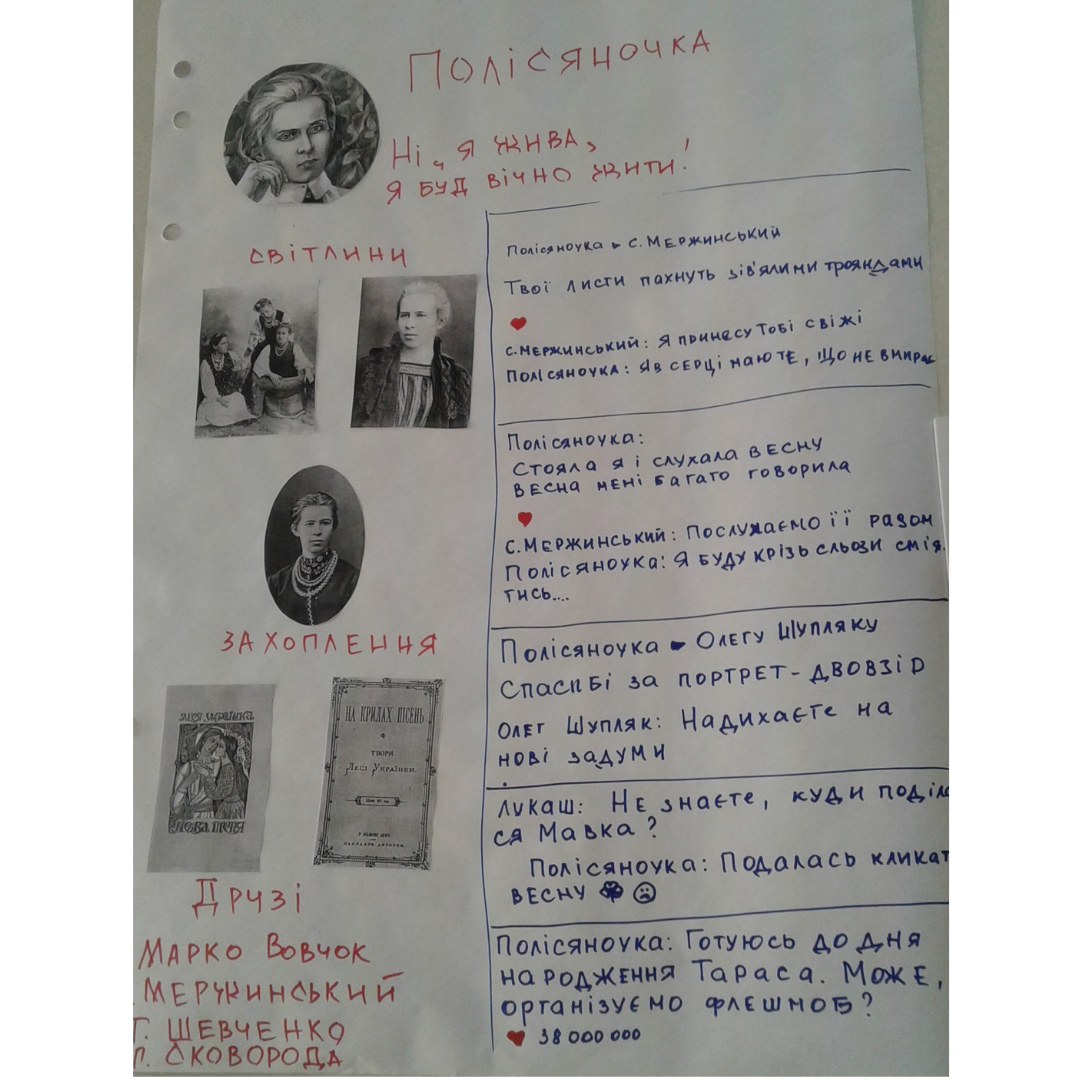 Полісяночка
Ні, я жива,
я буд вічно жити!
Світлини
Захоплення
Леся Українка
НА КРИЛАХ ПІСЕНЬ
ТВОРИ
Лесі Українки.
Друзі
Марко Вовчок
Мержинський
Т. Шевченко
Г. Сковорода
Полісяночка ► С. Мержинський
Твої листи пахнуть зів'ялими трояндами
♥
С. Мержинський: Я принесу Тобі свіжі
Полісяночка: Я в серці маю те, що не вмирає
Полісяночка:
Стояла я і слухала весну
Весна мені багато говорила
♥
С. Мержинський: Послухаємо її разом
Полісяночка: Я буду крізь сльози смія
тись....
Полісяночка ► Олегу Шупляку
Спасибі за портрет-двовзір
Олег Шупляк: Надихаєте на
нові задуми
Лукаш: Не знаєте, куди поділа
ся Мавка?
Полісяночка: Подалась кликат
весну ☹
Полісяночка: Готуюсь до дня
народження Тараса. Може,
організуємо флешмоб?
♥ 38 000 000